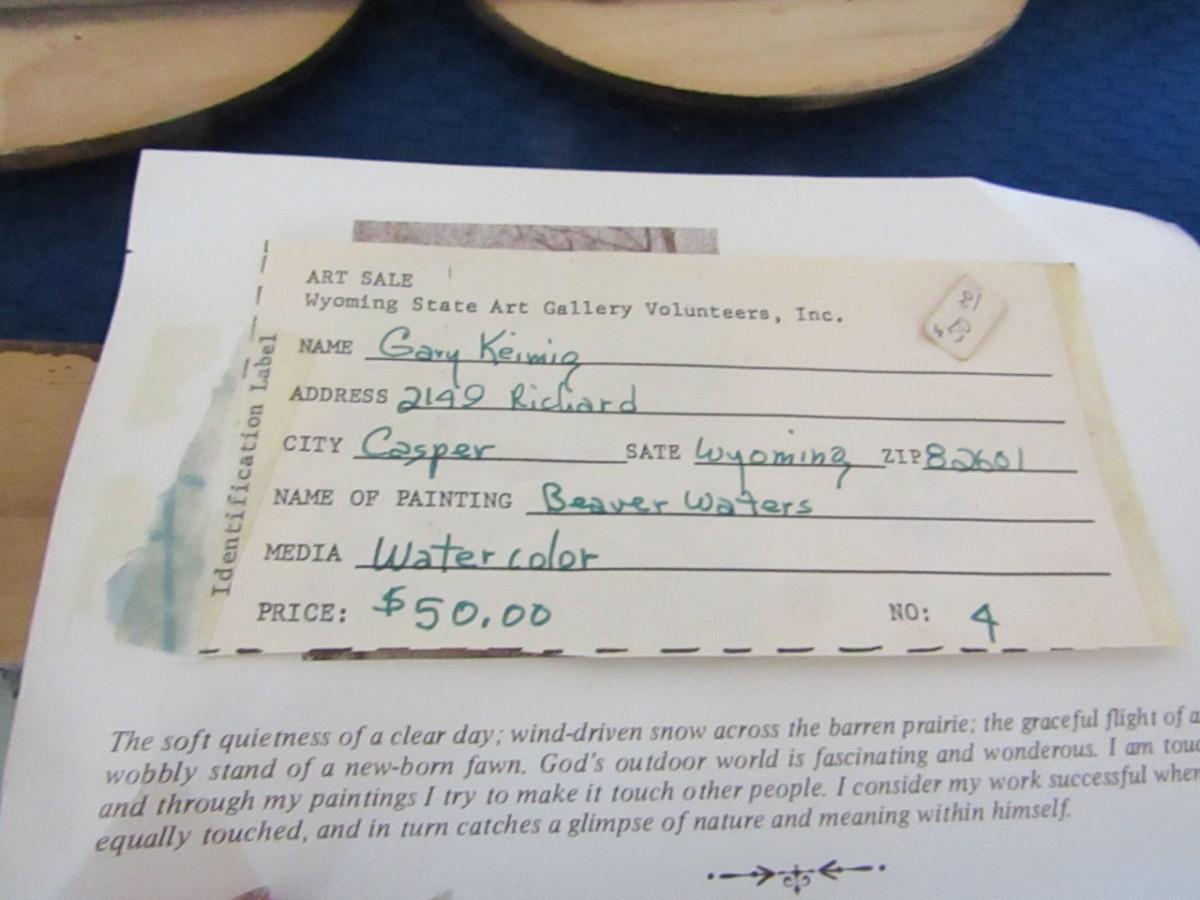 ART SALE
Wyoming State Art Gallery Volunteers, Inc.
NAME Gary Keimig
ADDRESS 2149 Richard
CITY Casper SATE Wyoming ZIP 82601
NAME OF PAINTING Beaver Waters
MEDIA Water color
PRICE: $50.00 NO: 4
Identification Label
The soft quietness of a clear day; wind-driven snow across the barren prairie; the graceful flight of a
wobbly stand of a new-born fawn. God's outdoor world is fascinating and wonderous. I am touc
and through my paintings I try to make it touch other people. I consider my work successful when
equally touched, and in turn catches a glimpse of nature and meaning within himself.